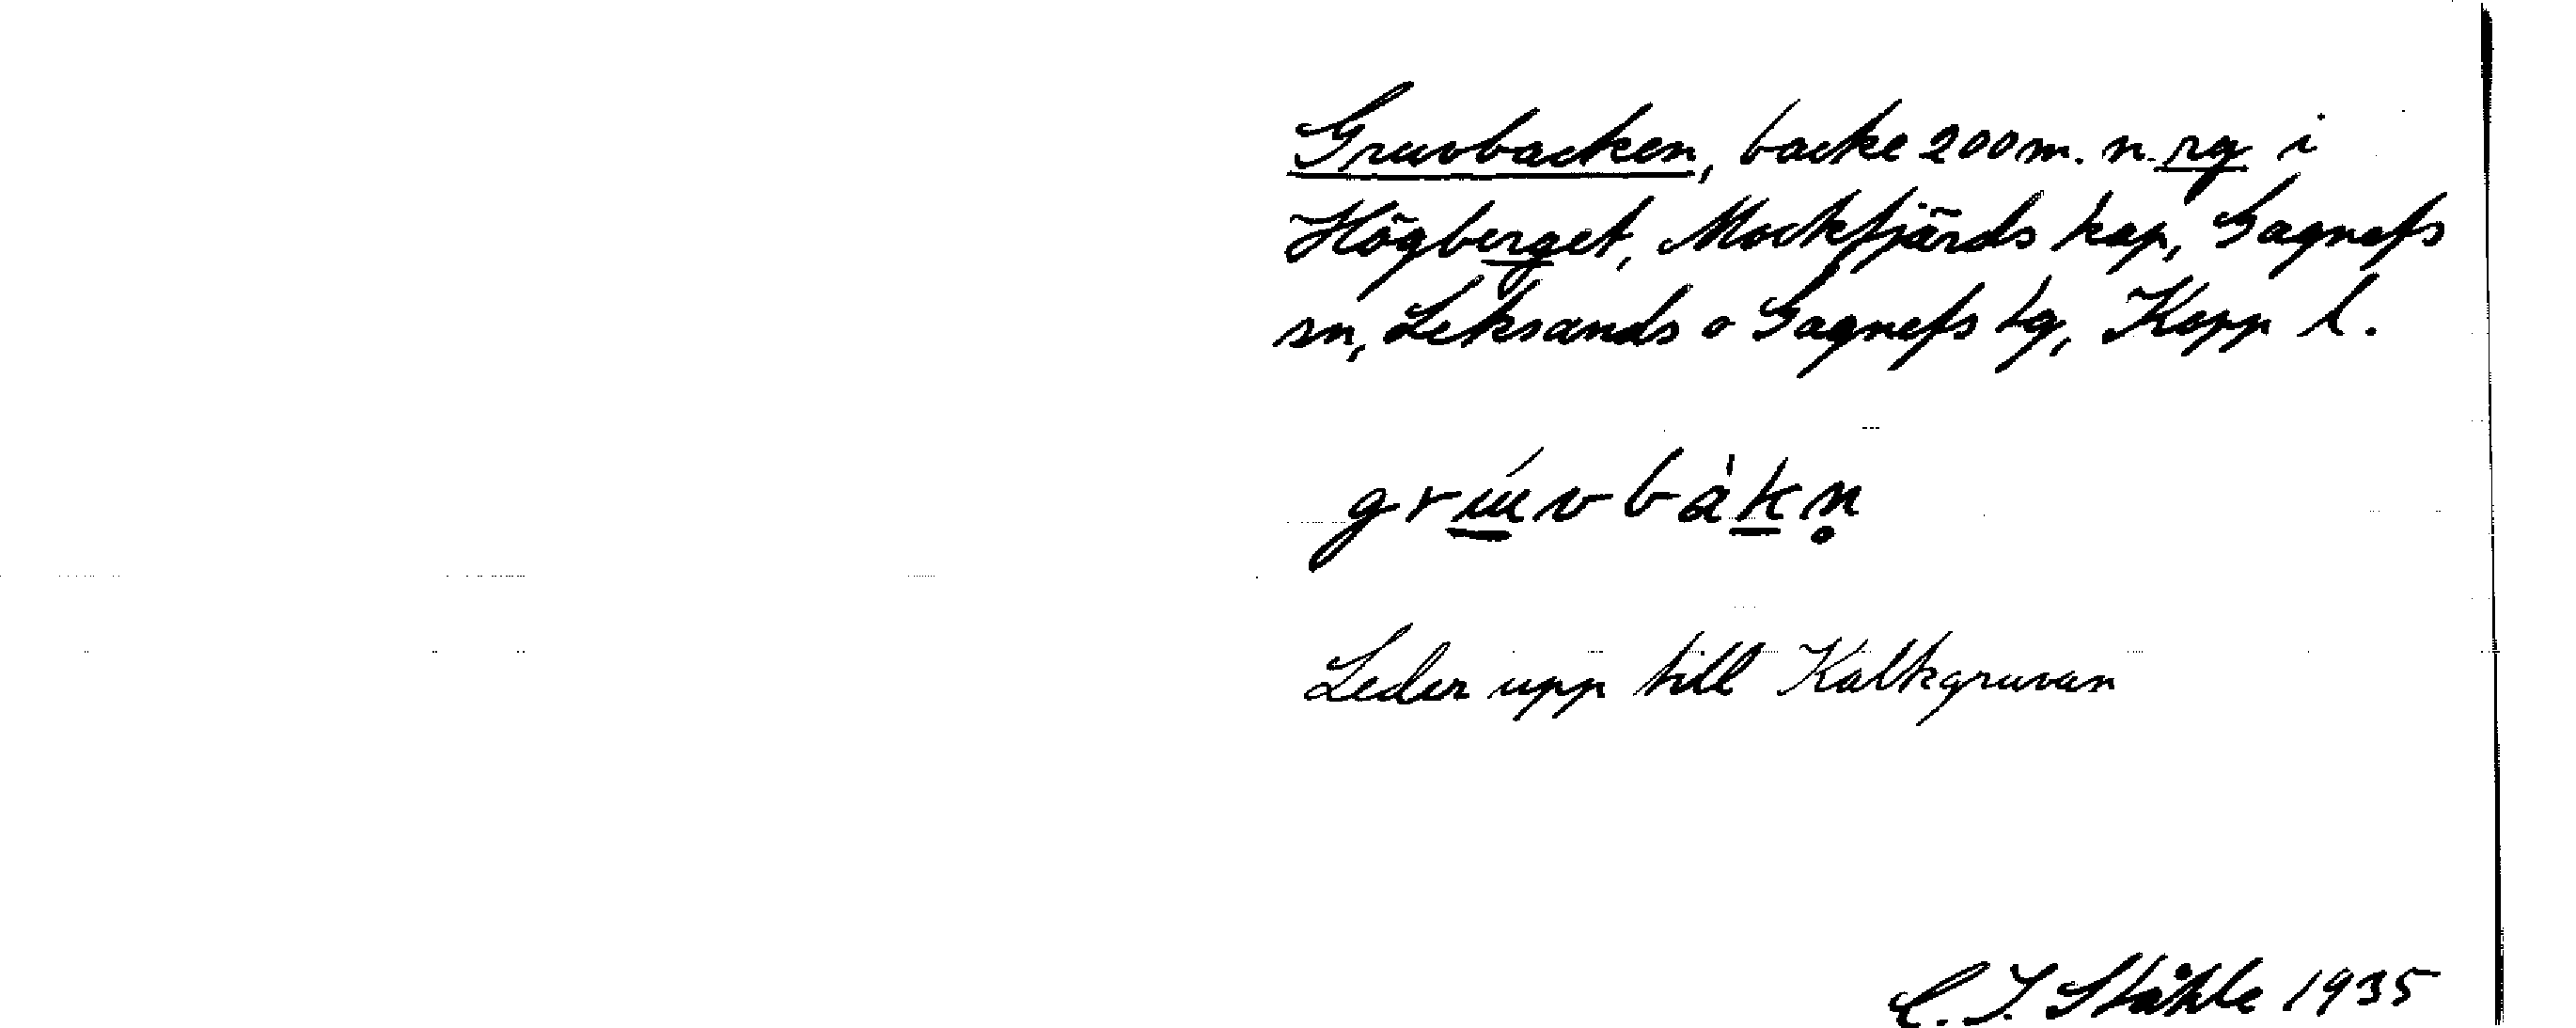 Gruvbacken, backe 200 m. n. rg i
Högberget, Mockfjärds kap, Gagnefs
sn, Leksands o Gagnefs tg, Kopp l.
grúvbàkn̥
Leder upp till Kalkgruvan
C. I. Ståhle 1935